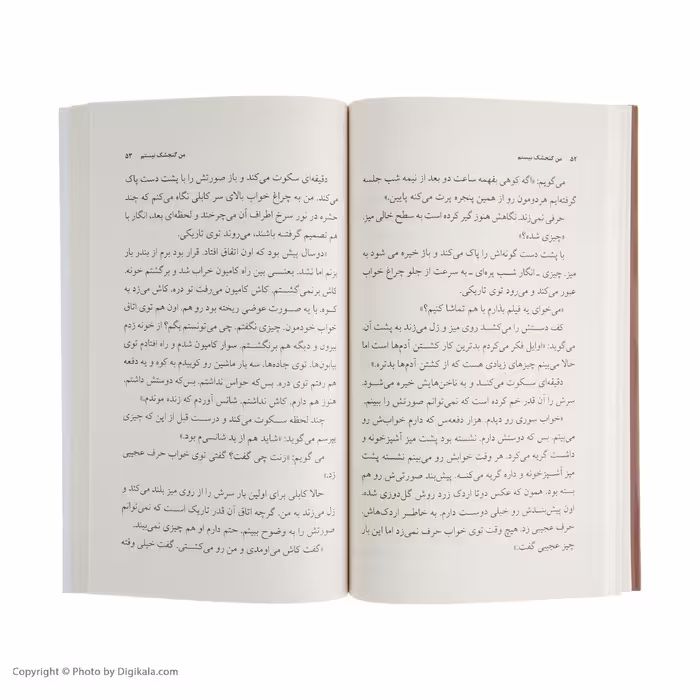 ۵۲ من گنجشک نیستم
می‌گویم: «اگه کوهی بفهمه ساعت دو بعد از نیمه شب جلسه
گرفته‌ایم هردومون رو از همین پنجره پرت می‌کنه پایین.»
حرفی نمی‌زند. نگاهش هنوز گیر کرده است به سطح خالی میز.
«چیزی شده؟»
با پشت دست گونه‌اش را پاک می‌کند و باز خیره می شود به
میز. چیزی ـ انگار شب پره‌ای ـ به سرعت از جلو چراغ خواب
عبور می‌کند و می‌رود توی تاریکی.
«می‌خوای یه فیلم بذارم با هم تماشا کنیم؟»
کف دستش را می‌کشد روی میز و زل می‌زند به پشت آن.
می‌گوید: «اوایل فکر می‌کردم بدترین کار کشتن آدم‌ها است اما
حالا می‌بینم چیزهای زیادی هست که از کشتن آدم‌ها بدتره.»
دقیقه‌ای سکوت می‌کند و به ناخن‌هایش خیره می‌شود.
سرش را آن قدر خم کرده است که نمی‌توانم صورتش را ببینم.
«خواب سوری رو دیدم. هزار دفعه‌س که دارم خوابش رو
می‌بینم. بس که دوستش دارم. نشسته بود پشت میز آشپزخونه و
داشت گریه می‌کرد. هر وقت خوابش رو می‌بینم نشسته پشت
میز آشپزخونه و داره گریه می‌کنه. پیش‌بند صورتی‌ش رو هم
بسته بود. همون که عکس دوتا اردک زرد روش گل‌دوزی شده.
اون پیش‌بندش رو خیلی دوست دارم. به خاطر اردک‌هاش.
حرف عجیبی زد. هیچ وقت توی خواب حرف نمی‌زد اما این بار
چیز عجیبی گفت.»
من گنجشک نیستم ۵۳
دقیقه‌ای سکوت می‌کند و باز صورتش را با پشت دست پاک
می‌کند. من به چراغ خواب بالای سر کابلی نگاه می‌کنم که چند
حشره در نور سرخ اطراف آن می‌چرخند و لحظه‌ای بعد، انگار با
هم تصمیم گرفته باشند، می‌روند توی تاریکی.
«دو سال پیش بود که اون اتفاق افتاد. قرار بود برم از بندر بار
بزنم اما نشد. یعنی بین راه کامیون خراب شد و برگشتم خونه.
کاش برنمی‌گشتم. کاش کامیون می‌رفت تو دره. کاش می‌زد به
کوه. یا یه صورت عوضی ریخته بود رو هم. اون هم توی اتاق
خواب خودمون. چیزی نگفتم. چی می‌تونستم بگم؟ از خونه زدم
بیرون و دیگه هم برنگشتم. سوار کامیون شدم و راه افتادم توی
بیابون‌ها. توی جاده‌ها. سه بار ماشین رو کوبیدم به کوه و یه دفعه
هم رفتم توی دره. بس که حواس نداشتم. بس‌که دوستش داشتم.
هنوز هم دارم. کاش نداشتم. شانس آوردم که زنده موندم.»
چند لحظه سکوت می‌کند و درست قبل از این که چیزی
بپرسم می‌گوید: «شاید هم از بد شانسی‌م بود.»
می گویم: «زنت چی گفت؟ گفتی توی خواب حرف عجیبی
زد.»
حالا کابلی برای اولین بار سرش را از روی میز بلند می‌کند و
زل می‌زند به من. گرچه اتاق آن قدر تاریک است که نمی‌توانم
صورتش را به وضوح ببینم، حتم دارم او هم چیزی نمی‌بیند.
«گفت کاش می‌اومدی و من رو می‌کشتی. گفت خیلی وقته
Copyright © Photo by Digikala.com